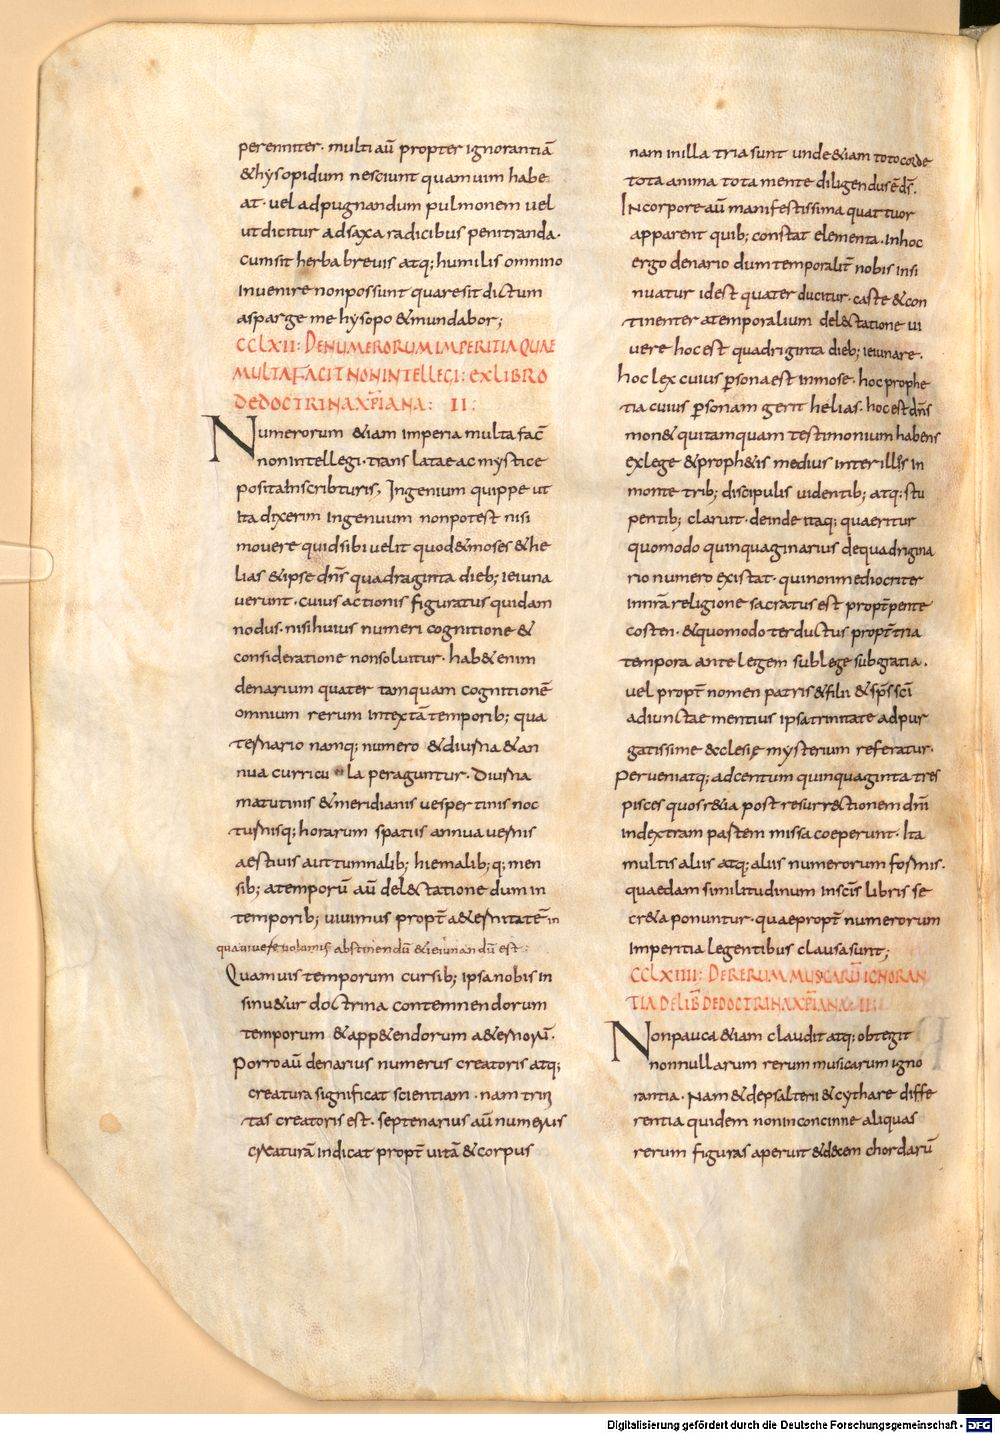 perenniter. multi aū propter ignorantiā
& hysopidum nesciunt quam uim habe
at. uel ad pugnandum pulmonem uel
ut dicitur ad saxa radicibus penitranda.
cum sit herba breuis atq; humilis omnino
inuenire non possunt quare sit dictum
asparge me hysopo & mundabor;
CCLXII: DE NUMERORUM IMPERITIA QUAE
MULTA FACIT NON INTELLEGI: EX LIBRO
DE DOCTRINA XP̄IANA: II:
Numerorum &iam imperia multa fac̄
non intellegi. translatae ac mystice
posita in scribturis, Ingenium quippe ut
ita dixerim ingenuum non potest nisi
mouere quid sibi uelit quod & moses & he
lias & ipse dn̄s quadraginta dieb; ieiuna
uerunt. cuius actionis figuratus quidam
nodus. nisi huius numeri cognitione &
consideratione non soluitur. hab& enim
denarium quater tamquam cognitionē
omnium rerum intextā temporib; qua
ternario namq; numero & diurna & an
nua curricu la peraguntur. Diurna
matutinis & meridianis uespertinis noc
turnisq; horarum spatiis annua uernis
aestiuis auttumnalib; hiemalib; q; men
sib; a temporū aū del&ctatione dum in
temporib; uiuimus propt̄ a&ernitatē in
qua uiuere uolumus abstinendū & ieiunandū est:
Quamuis temporum cursib; ipsa nobis in
sinu&ur doctrina contemnendorum
temporum & app&endorum a&ernorū.
Porro aū denarius numerus creatoris atq;
creatura significat scientiam. nam trini
tas creatoris est. septenarius aū numerus
creaturā indicat propt̄ uitā & corpus
nam in illa tria sunt unde &iam toto corde
tota anima tota mente diligendus ē ds̄.
In corpore aū manifestissima quattuor
apparent quib; constat elementa. In hoc
ergo denario dum temporalit̄ nobis insi
nuatur id est quater ducitur. caste & con
tinenter a temporalium del&ctatione ui
uere hoc est quadriginta dieb; ieiunare.
hoc lex cuius p̱sona est in mose. hoc prophe
tia cuius p̱sonam gerit helias. hoc est dn̄s
mon& qui tamquam testimonium habens
ex lege & proph&is medius inter illos in
monte trib; discipulis uidentib; atq; stu
pentib; claruit. deinde itaq; quaeritur
quomodo quinquaginarius de quadrigina
rio numero existat. qui non mediocriter
in nr̄a religione sacratus est propt̄ pente
costen. & quomodo ter ductus propt̄ tria
tempora ante legem sub lege sub gratia.
uel propt̄ nomen patris & filii & sp̄s sc̄i
adiunctae mentius ipsa trinitate ad pur
gatissime &cclesię mysterium referatur.
Perueniatq; ad centum quinquaginta tres
pisces quos r&ia post resurr&ctionem dn̄i
in dextram partem missa coeperunt. Ita
multis aliis atq; aliis numerorum formis.
quaedam similitudinum in sc̄is libris se
cr&a ponuntur. quae propt̄ numerorum
imperitia legentibus clausa sunt;
CCLXIIII: DE RERUM MUSICARŪ IGNORAN
TIA DE LIB̄ DE DOCTRINA XP̄IANA: II:
Non pauca &iam claudit atq; obtegit
nonnullarum rerum musicarum igno
rantia. Nam & de psalterii & cythare diffe
rentia quidem non inconcinne aliquas
rerum figuras aperuit & decem chordarū
Digitalisierung gefördert durch die Deutsche Forschungsgemeinschaft - DFG